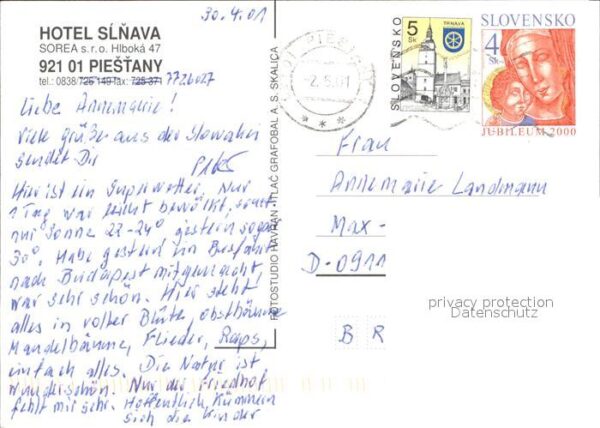 30.4.01
HOTEL SĹŇAVA
SOREA s.r.o. Hlboká 47
921 01 PIEŠŤANY
tel.: 0838/726 149 fax: 725 371 7726027
Liebe Annemarie!
Viele Grüße aus der Slowakei
sendet Dir
Hier ist ein Superwetter, Nur
1 Tag war leicht bewölkt, sonst
nur Sonne 22-24° gestern sogar
30°. Habe gestern im Busfahrt
nach Budapest mitgemacht,
war sehr schön. Hier steht
alles in voller Blüte, obstbäume
Mandelbäume, Flieder, Raps,
einfach alles. Die Natur ist
wunderschön. Nur der Friedhof
fehlt mir sehr. Hoffentlich kümmern
sich die Kinder
FOTOSTUDIO HAVRAN TLAČ GRAFOBAL A. S. SKALICA
-2.5.01
SLOVENSKO
5 Sk
TRNAVA
SLOVENSKO
4 Sk
JUBILEUM 2000
Frau
Annemarie Landmann
Max-
D-0911
privacy protection
Datenschutz
B R